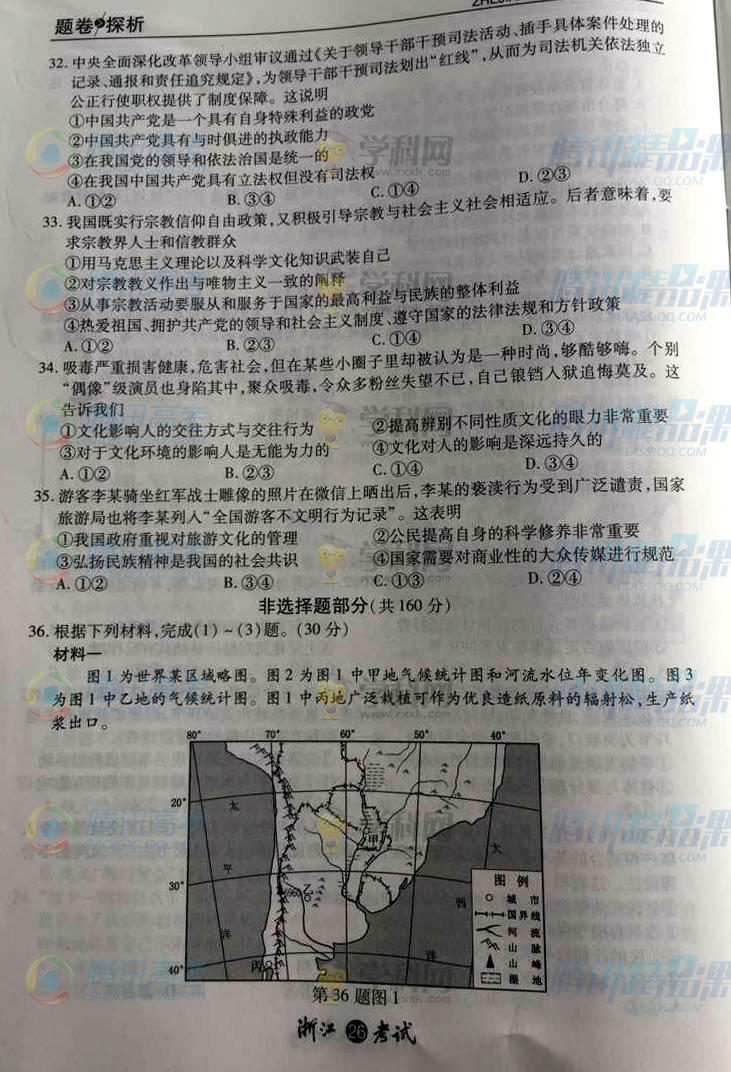 题卷与探析
32. 中央全面深化改革领导小组审议通过《关于领导干部干预司法活动、插手具体案件处理的
记录、通报和责任追究规定》,为领导干部干预司法划出“红线”,从而为司法机关依法独立
公正行使职权提供了制度保障。这说明
①中国共产党是一个具有自身特殊利益的政党
②中国共产党具有与时俱进的执政能力
③在我国党的领导和依法治国是统一的
④在我国中国共产党具有立法权但没有司法权
A. ①② B. ③④ C. ①④ D. ②③
33. 我国既实行宗教信仰自由政策,又积极引导宗教与社会主义社会相适应。后者意味着,要
求宗教界人士和信教群众
①用马克思主义理论以及科学文化知识武装自己
②对宗教教义作出与唯物主义一致的阐释
③从事宗教活动要服从和服务于国家的最高利益与民族的整体利益
④热爱祖国、拥护共产党的领导和社会主义制度、遵守国家的法律法规和方针政策
A. ①② B. ②③ C. ①④ D. ③④
34. 吸毒严重损害健康,危害社会,但在某些小圈子里却被认为是一种时尚,够酷够嗨。个别
“偶像”级演员也身陷其中,聚众吸毒,令众多粉丝失望不已,自己锒铛入狱追悔莫及。这
告诉我们
①文化影响人的交往方式与交往行为 ②提高辨别不同性质文化的眼力非常重要
③对于文化环境的影响人是无能为力的 ④文化对人的影响是深远持久的
A. ①② B. ②③ C. ①④ D. ③④
35. 游客李某骑坐红军战士雕像的照片在微信上晒出后,李某的亵渎行为受到广泛谴责,国家
旅游局也将李某列入“全国游客不文明行为记录”。这表明
①我国政府重视对旅游文化的管理 ②公民提高自身的科学修养非常重要
③弘扬民族精神是我国的社会共识 ④国家需要对商业性的大众传媒进行规范
A. ①② B. ③④ C. ①③ D. ②④
非选择题部分(共160分)
36. 根据下列材料,完成(1)~(3)题。(30分)
材料一
图1为世界某区域略图。图2为图1中甲地气候统计图和河流水位年变化图。图3
为图1中乙地的气候统计图。图1中丙地广泛栽植可作为优良造纸原料的辐射松,生产纸
浆出口。
80° 70° 60° 50° 40°
20°
太 大
甲
平
30°
乙
6960
西
洋 洋
40°
丙
图 例
城 市
国界线
河 流
山 脉
山 峰
湿 地
第36题图1
浙江 26 考试
学科网
www.zxxk.com
腾讯高考
腾讯精品课
CLASS.QQ.COM